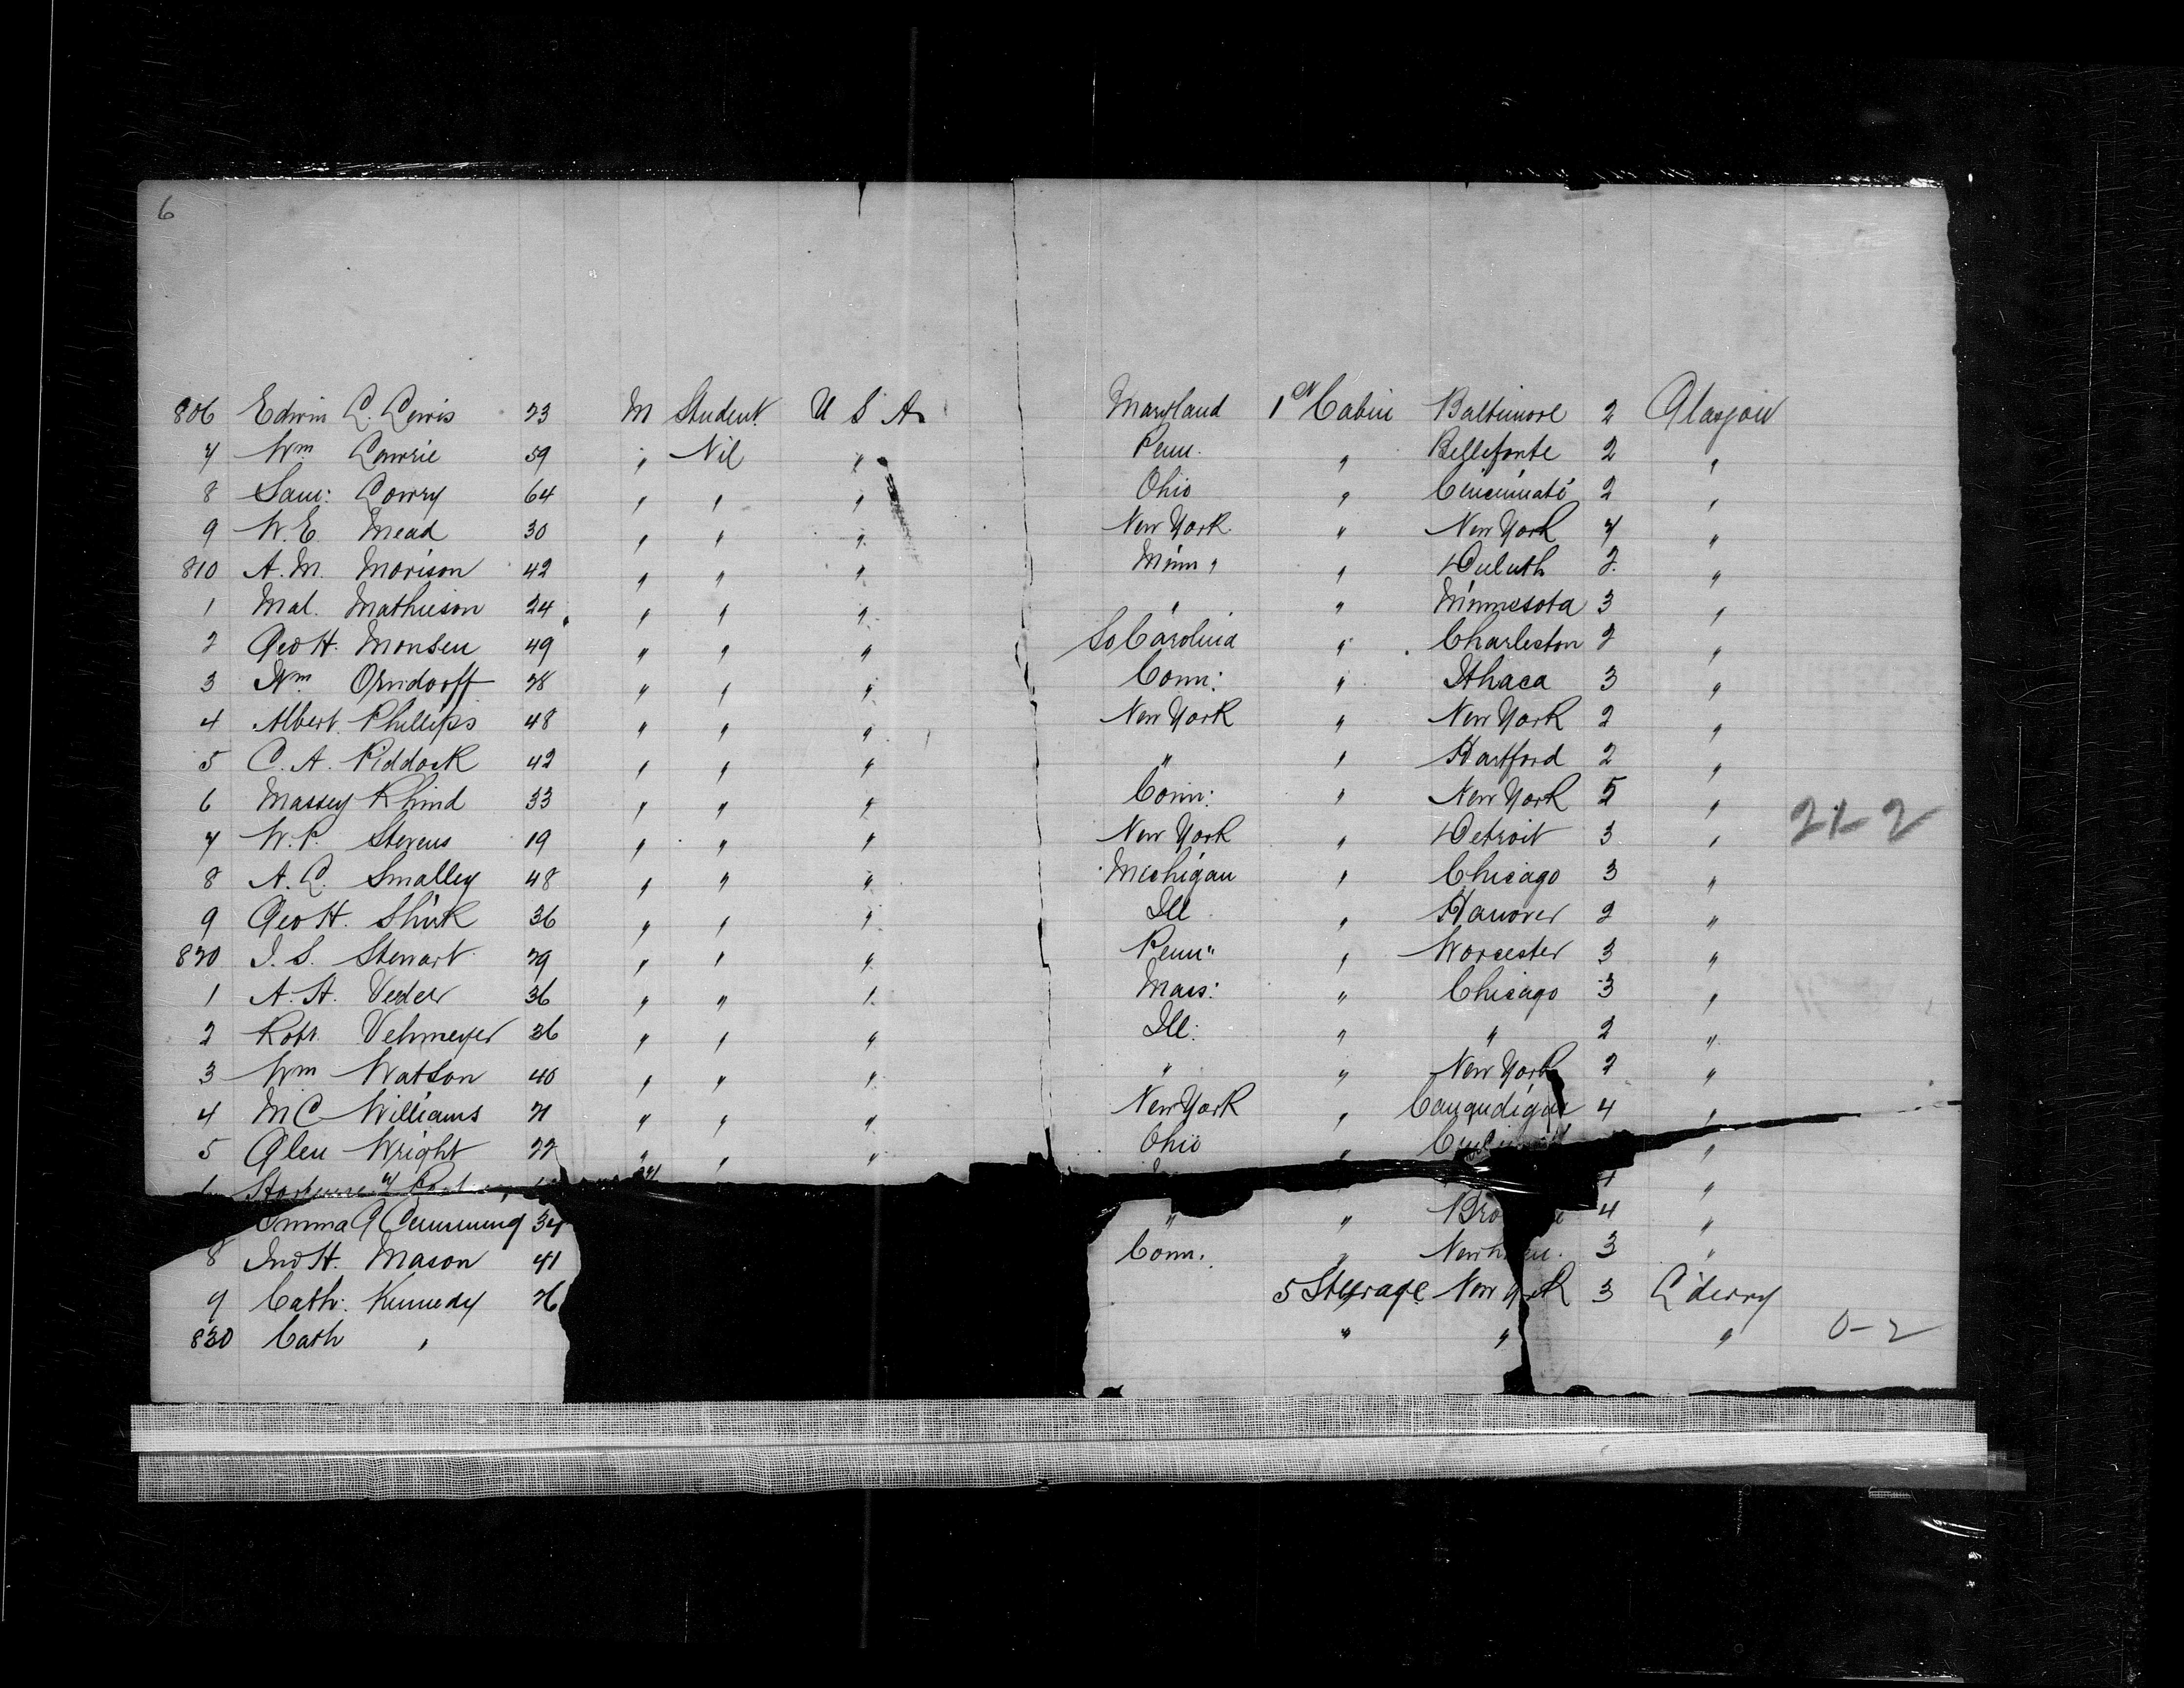 6
806 Edwin L. Lewis 23 M Student U S A Maryland 1st Cabin Baltimore 2 Glasgow
7 Wm Lawrie 59 " Nil " Penn. " Bellefonte 2 "
8 Sam: Lowry 64 " " " Ohio " Cincinnati 2 "
9 W. E. Mead 30 " " " New York " New York 7 "
810 A. M. Morison 42 " " " Minn " " Duluth 2 "
1 Mal. Mathieson 24 " " " " " Minnesota 3 "
2 Geo H. Monsen 49 " " " So Carolina " Charleston 2 "
3 Wm Orndorff 28 " " " Conn: " Ithaca 3 "
4 Albert Phillips 48 " " " New York " New York 2 "
5 C. A. Piddock 42 " " " " " Hartford 2 "
6 Massey Rhind 33 " " " Conn: " New York 5 "
7 W. P. Stevens 19 " " " New York " Detroit 3 " 21-2
8 A. C. Smalley 48 " " " Michigan " Chicago 3 "
9 Geo H. Shirk 36 " " " Ill " Hanover 2 "
820 J. S. Stewart 29 " " " Penn " " Worcester 3 "
1 A. H. Veder 36 " " " Mass: " Chicago 3 "
2 Robt. Vehmeyer 36 " " " Ill: " " 2 "
3 Wm Watson 40 " " " " " New York 2 "
4 M C Williams 21 " " " New York " 4 "
5 Glen Wright 22 " " " Ohio " "
"
Emma Cumming 34 " " 4 "
8 Jno H. Mason 41 Conn. " 3 "
9 Cath: Kennedy 26 5 Steerage New York 3 L'derry
830 Cath " " " " 0-2